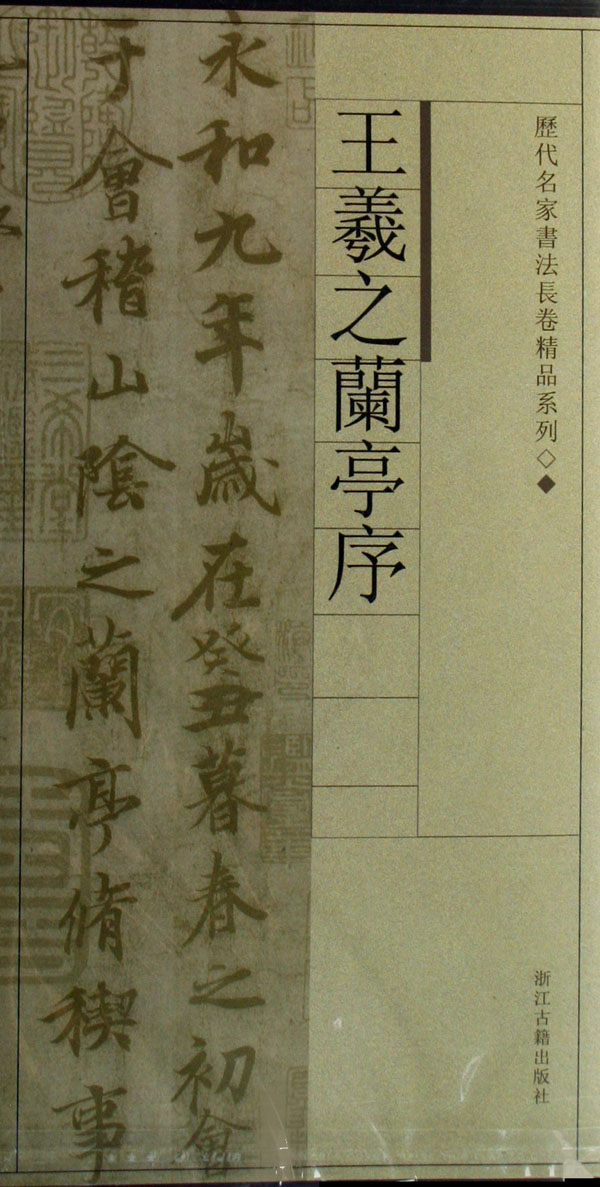 歷代名家書法長卷精品系列◇◆
浙江古籍出版社
王羲之蘭亭序
永和九年歲在癸丑暮春之初會
于會稽山陰之蘭亭脩稧事